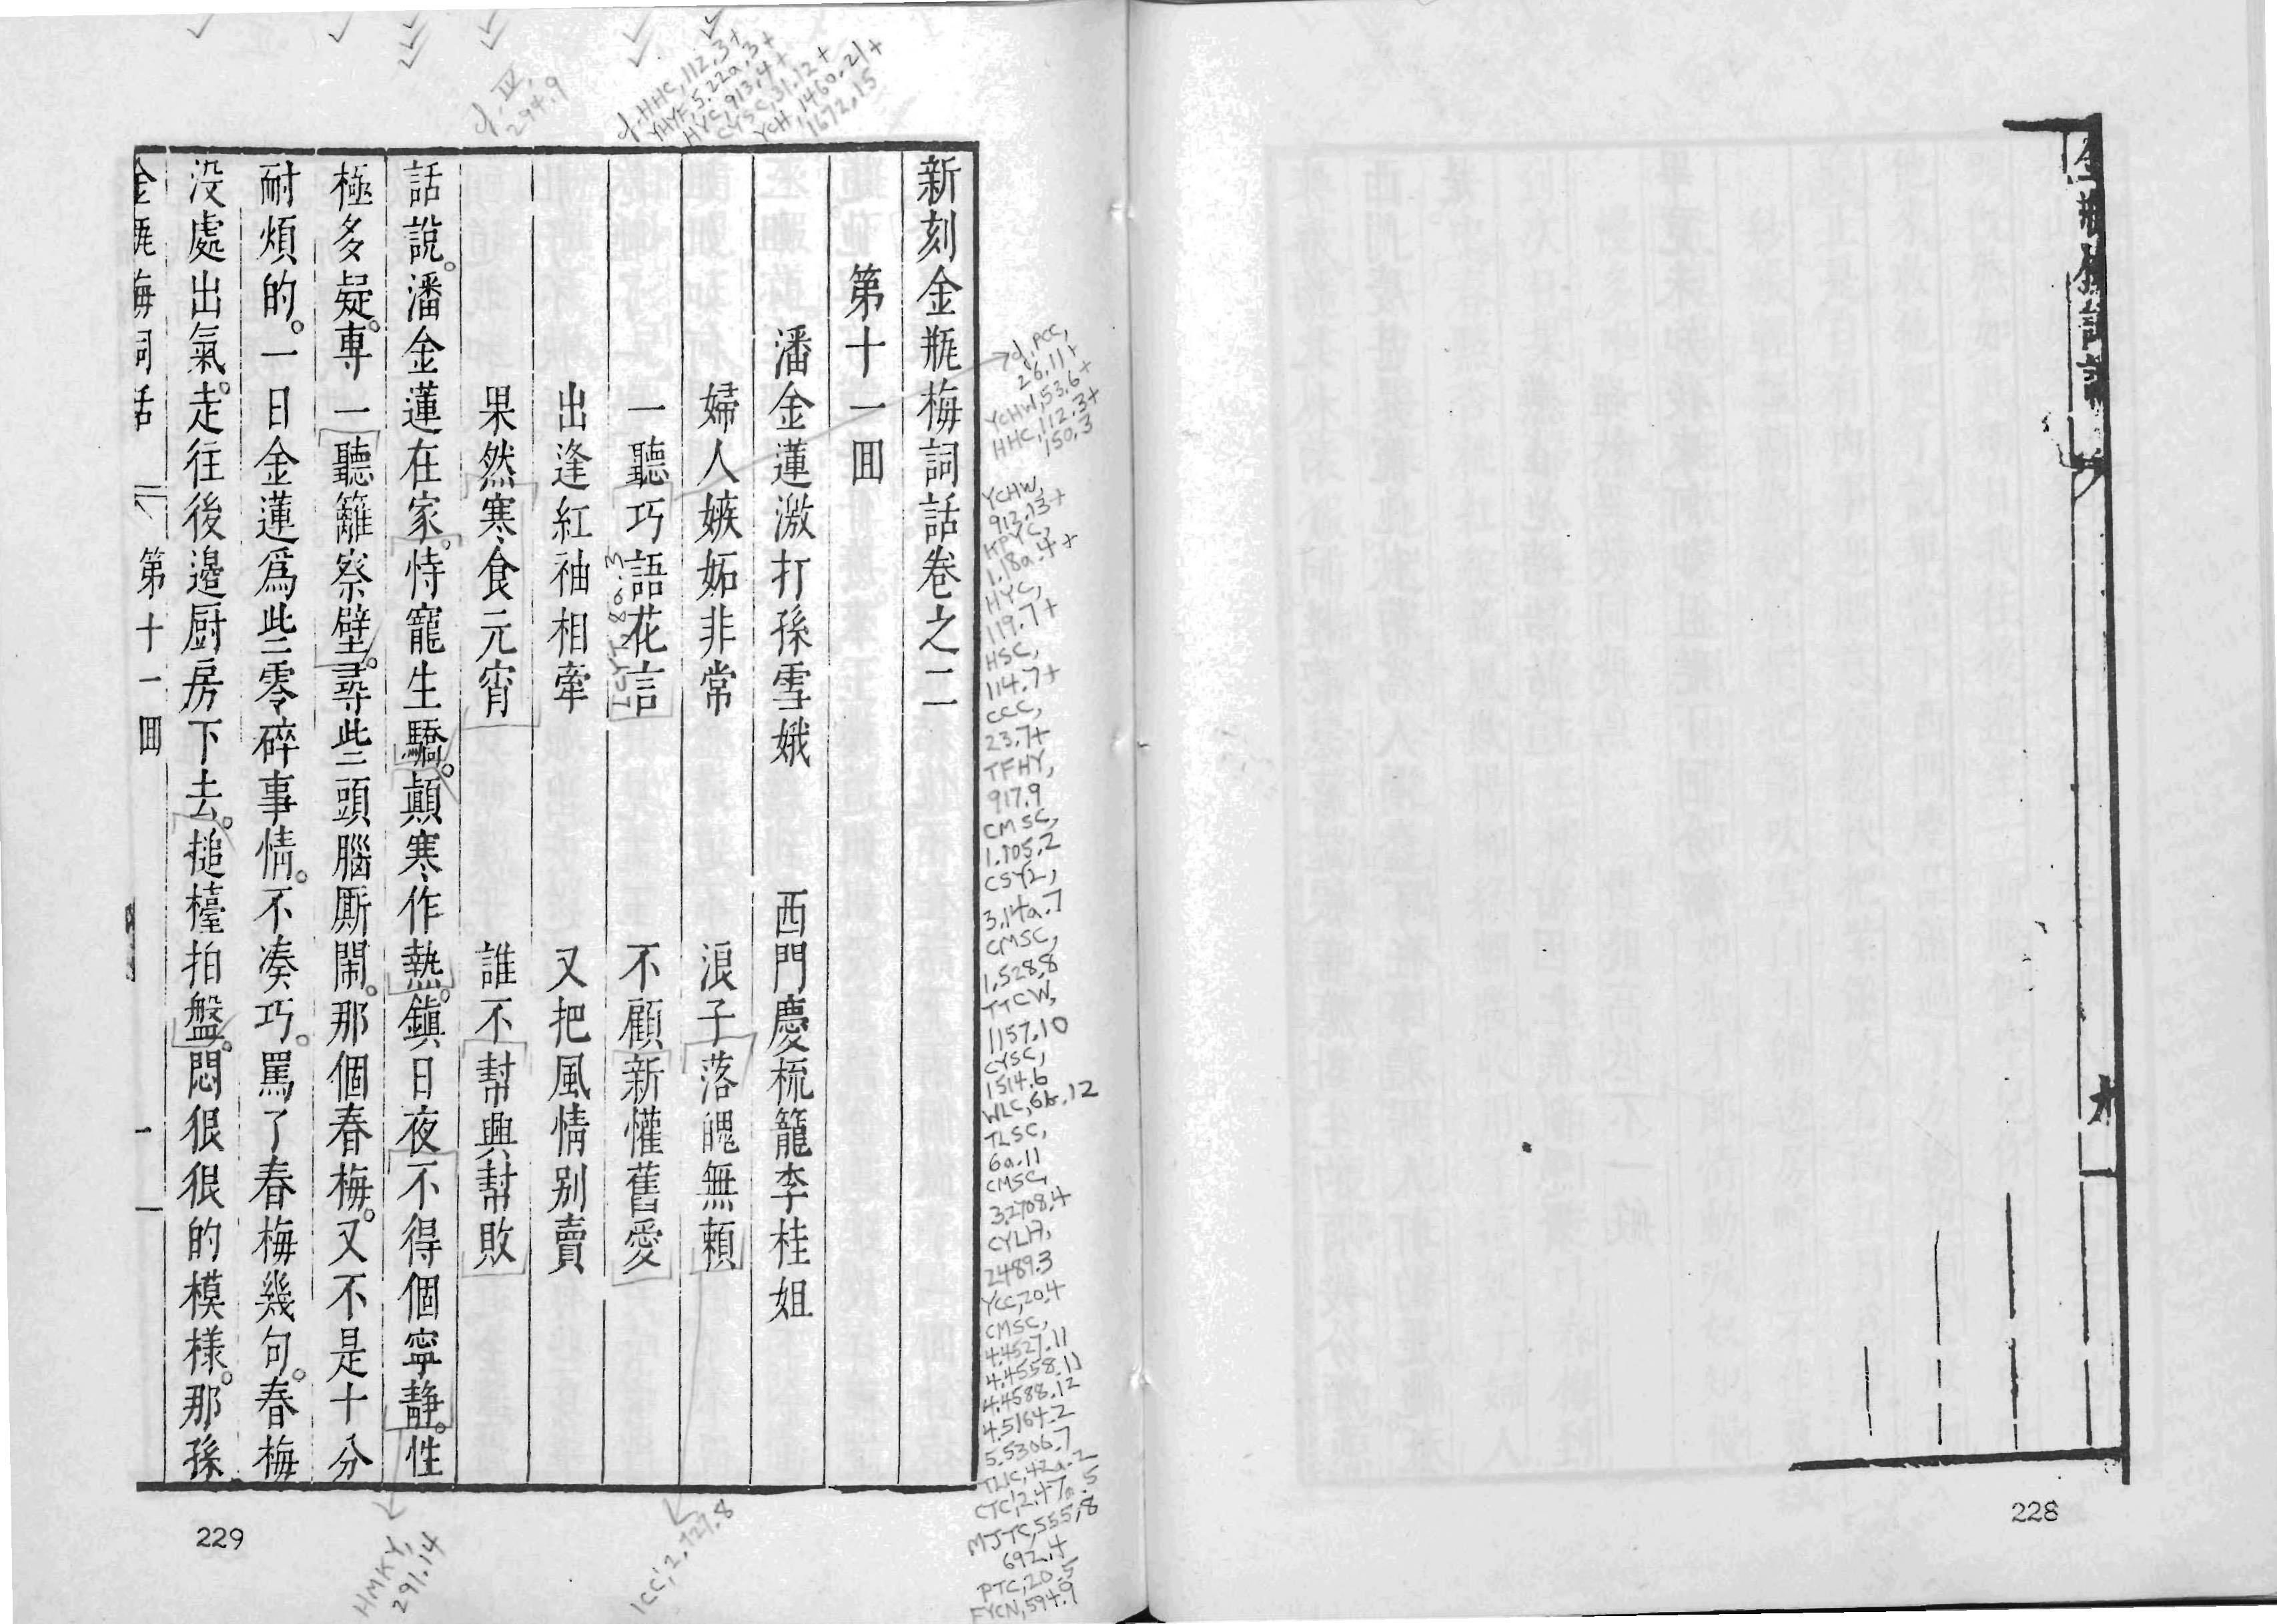 新刻金瓶梅詞話卷之二
第十一回
潘金蓮激打孫雪娥　西門慶梳籠李桂姐
婦人嫉妬非常　浪子落魄無賴
一聽巧語花言　不顧新懽舊愛
出逢紅袖相牽　又把風情別賣
果然寒食元宵　誰不幇興幇敗
話說。潘金蓮在家。恃寵生驕。顛寒作熱。鎮日夜不得個寧靜。性
極多疑。專一聽籬察壁。尋些頭腦厮鬧。那個春梅。又不是十分
耐煩的。一日金蓮爲些零碎事情。不凑巧。罵了春梅幾句。春梅
没處出氣。走往後邊厨房下去。搥檯拍盤。悶很很的模樣。那孫
金瓶梅詞話　第十一回　一
229
228
cf. IV,
294.9
cf. HHC, 112.3+
YHYF, 5.22a.3+
HYC, 913.4+
CYSC, 31.12+
YCH, 1460.21+
1672.15
cf. PCC,
26.11+
YCHW, 53.6+
HHC, 112.3+
150.3
YCHW,
912.13+
KPYC,
1.18a.4+
HYC,
119.7+
HSC,
114.7+
CCC,
23.7+
TFHY,
917.9
CMSC,
1.105.2
CSYZ,
3.14a.7
CMSC,
1.528.8
TTCW,
1157.10
CYSC,
1514.6
WLC, 6b.12
TLSC,
6a.11
CMSC,
3.2708.4
CYLH,
2489.3
YCC, 20.4
CMSC,
4.4527.11
4.4558.11
4.4588.12
4.5164.2
5.5306.7
TLIC, 42a.2
CTC, 2.47a.5
MJTC, 555.8
692.4
PTC, 20.5
FYCN, 594.9
HMKY,
291.14